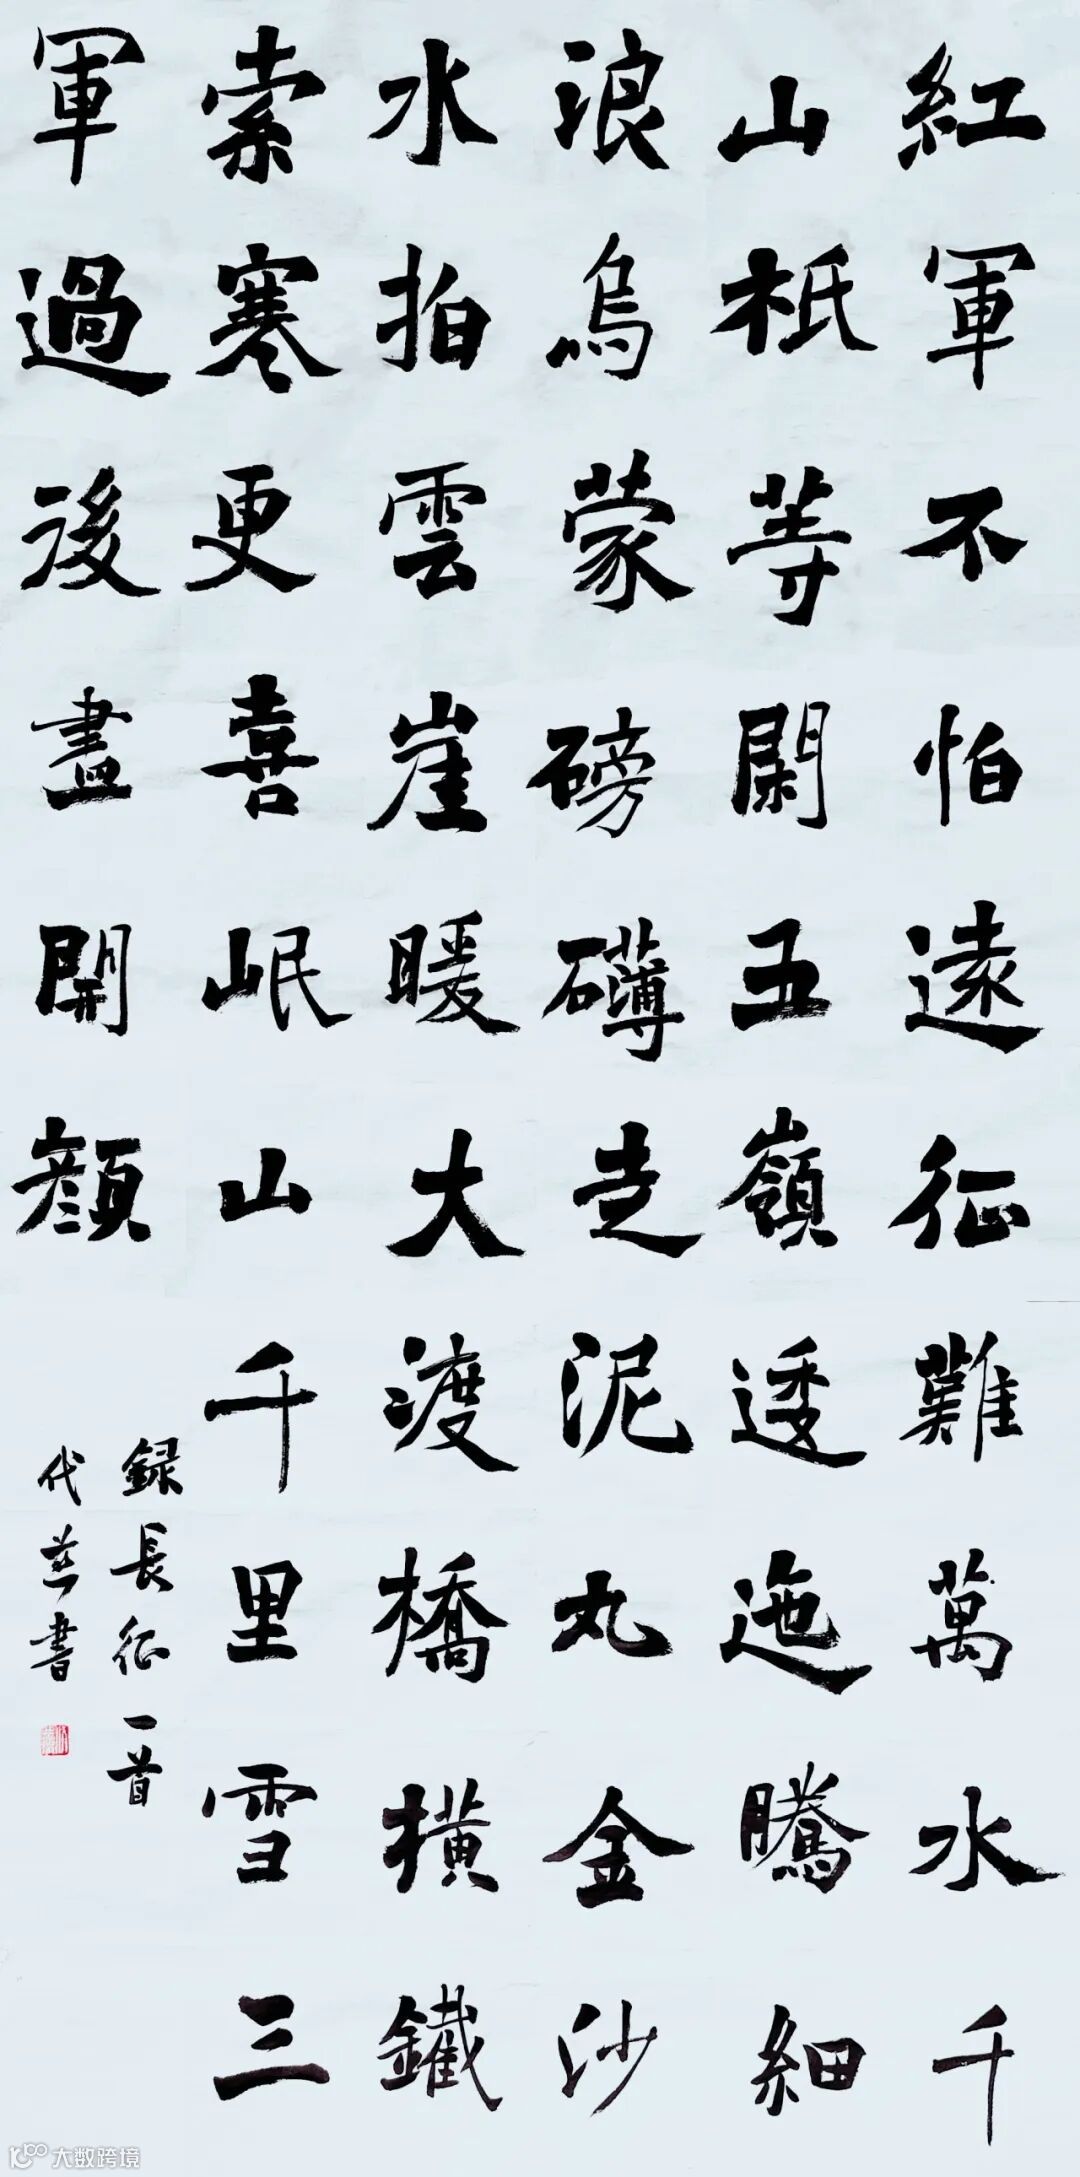 紅軍不怕遠征難萬水千
山祇等閑五嶺逶迤騰細
浪烏蒙磅礴走泥丸金沙
水拍雲崖暖大渡橋橫鐵
索寒更喜岷山千里雪三
軍過後盡開顏
録長征一首
代書
大数跨境